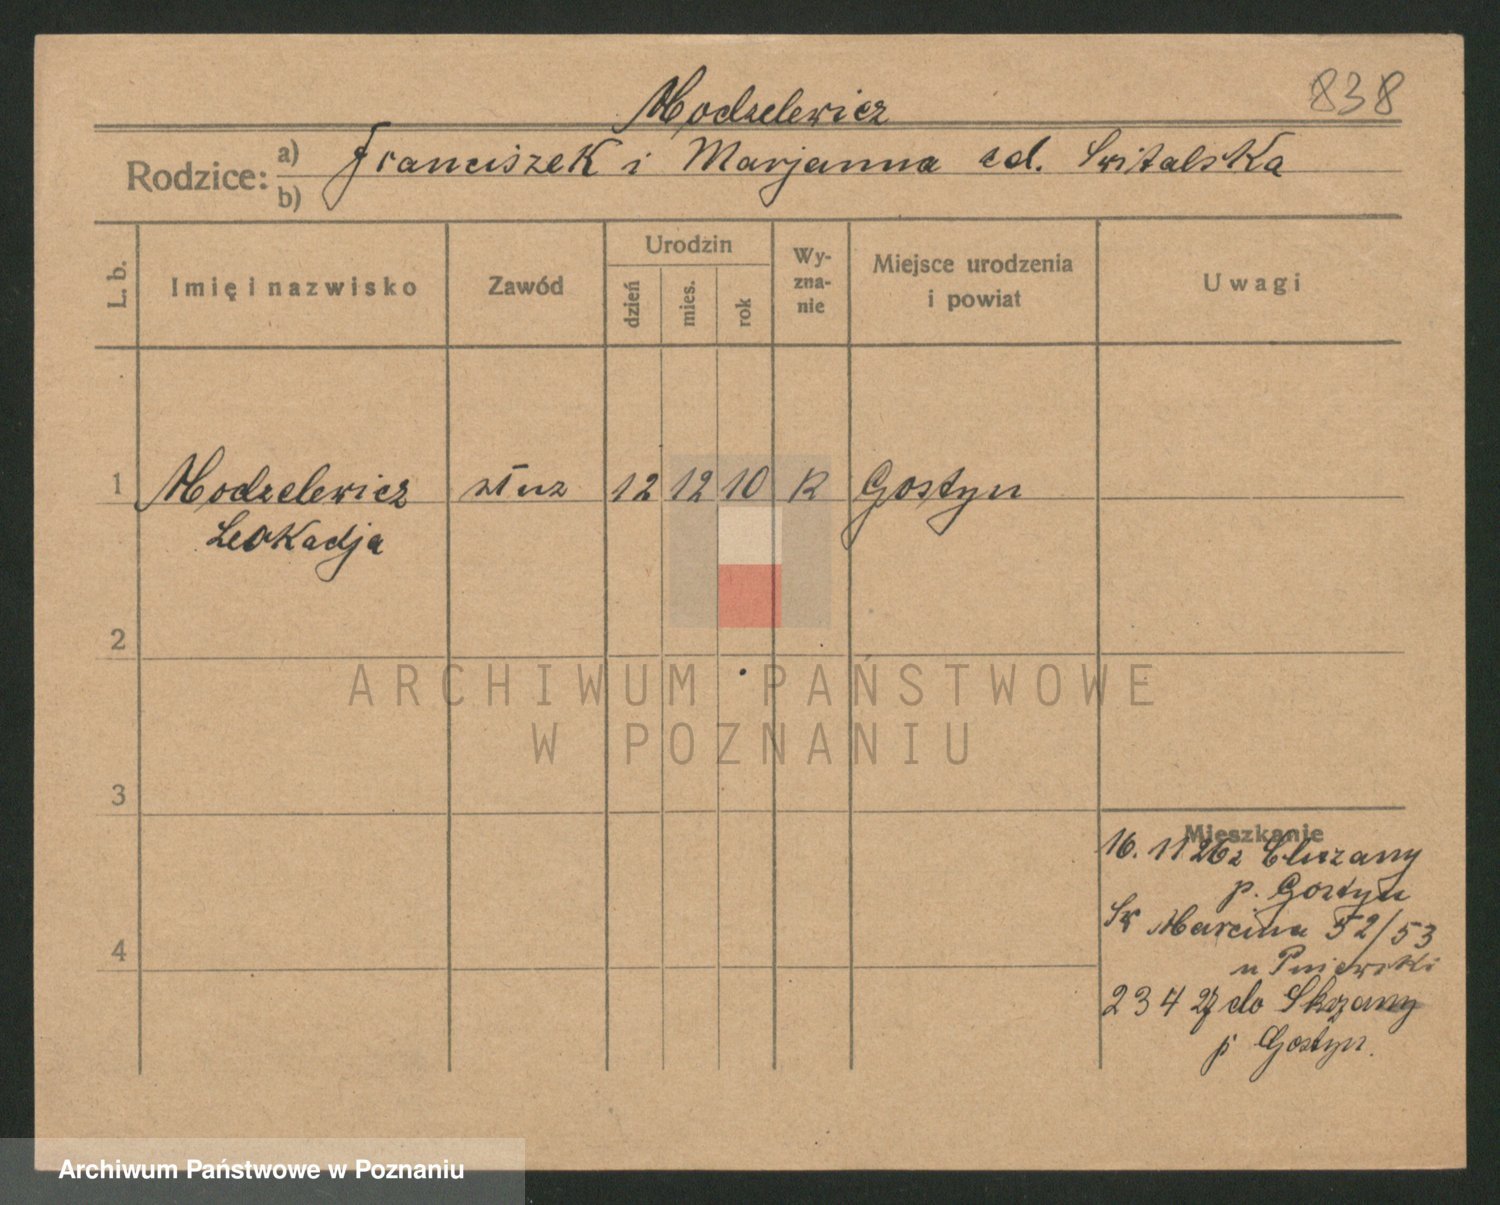 838
Modzelewicz
Rodzice: a) Franciszek i Marjanna cd. Switalska
b)
L. b.
Imię i nazwisko
Zawód
Urodzin
dzień
mies.
rok
Wy-
zna-
nie
Miejsce urodzenia
i powiat
Uwagi
1 Modzelewicz służ 12 12 10 R Gostyn
Leokadja
2
3
4
Mieszkanie
16. 11 26 z
p. Gostyn
Sw Marcina 52/53
u Pniewski
23 4 27 do
p Gostyn.
ARCHIWUM PAŃSTWOWE
W POZNANIU
Archiwum Państwowe w Poznaniu